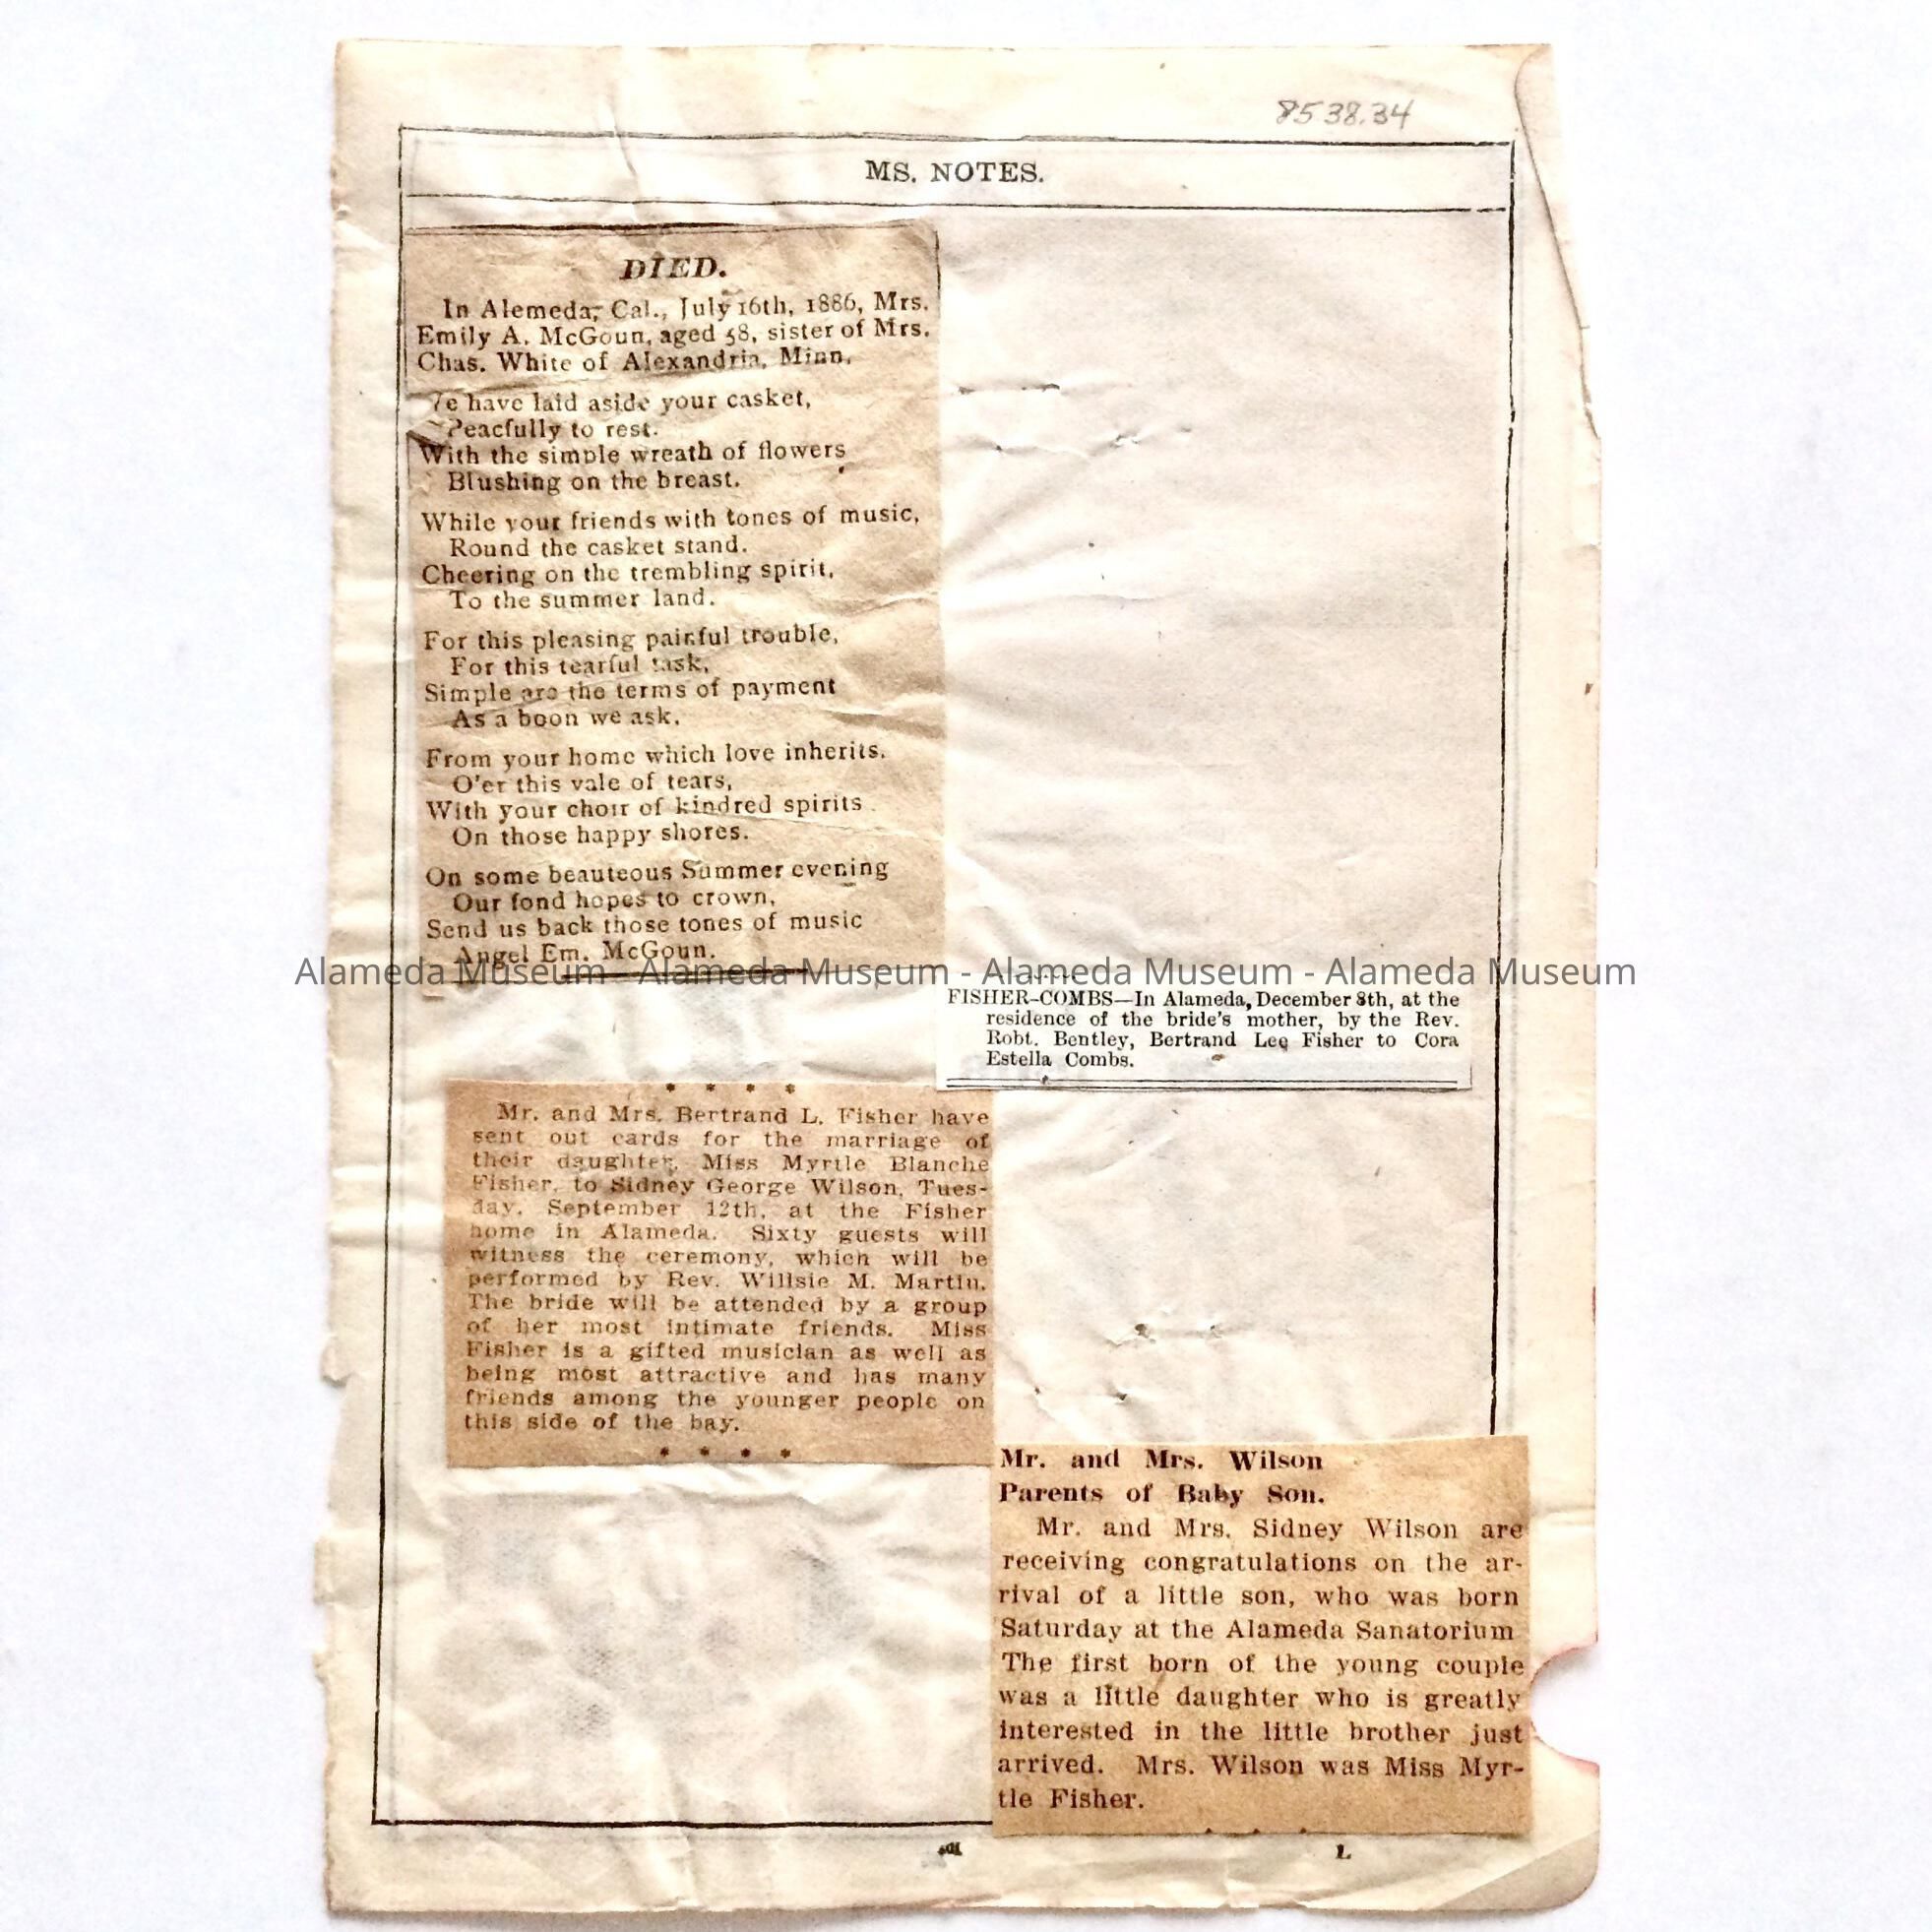 8538.34
MS. NOTES.
DIED.
In Alemeda, Cal., July 16th, 1886, Mrs.
Emily A. McGoun, aged 58, sister of Mrs.
Chas. White of Alexandria, Minn.
have laid aside your casket,
Peacfully to rest.
With the simple wreath of flowers
Blushing on the breast.
While your friends with tones of music,
Round the casket stand.
Cheering on the trembling spirit,
To the summer land.
For this pleasing painful trouble,
For this tearful task,
Simple are the terms of payment
As a boon we ask.
From your home which love inherits.
O'er this vale of tears,
With your choir of kindred spirits
On those happy shores.
On some beauteous Summer evening
Our fond hopes to crown,
Send us back those tones of music
Angel Em. McGoun.
Alameda Museum - Alameda Museum - Alameda Museum - Alameda Museum
FISHER-COMBS—In Alameda, December 8th, at the
residence of the bride's mother, by the Rev.
Robt. Bentley, Bertrand Lee Fisher to Cora
Estella Combs.
* * * *
Mr. and Mrs. Bertrand L. Fisher have
sent out cards for the marriage of
their daughter, Miss Myrtle Blanche
Fisher, to Sidney George Wilson, Tues-
day, September 12th, at the Fisher
home in Alameda. Sixty guests will
witness the ceremony, which will be
performed by Rev. Willsie M. Martin.
The bride will be attended by a group
of her most intimate friends. Miss
Fisher is a gifted musician as well as
being most attractive and has many
friends among the younger people on
this side of the bay.
* * * *
Mr. and Mrs. Wilson
Parents of Baby Son.
Mr. and Mrs. Sidney Wilson are
receiving congratulations on the ar-
rival of a little son, who was born
Saturday at the Alameda Sanatorium
The first born of the young couple
was a little daughter who is greatly
interested in the little brother just
arrived. Mrs. Wilson was Miss Myr-
tle Fisher.